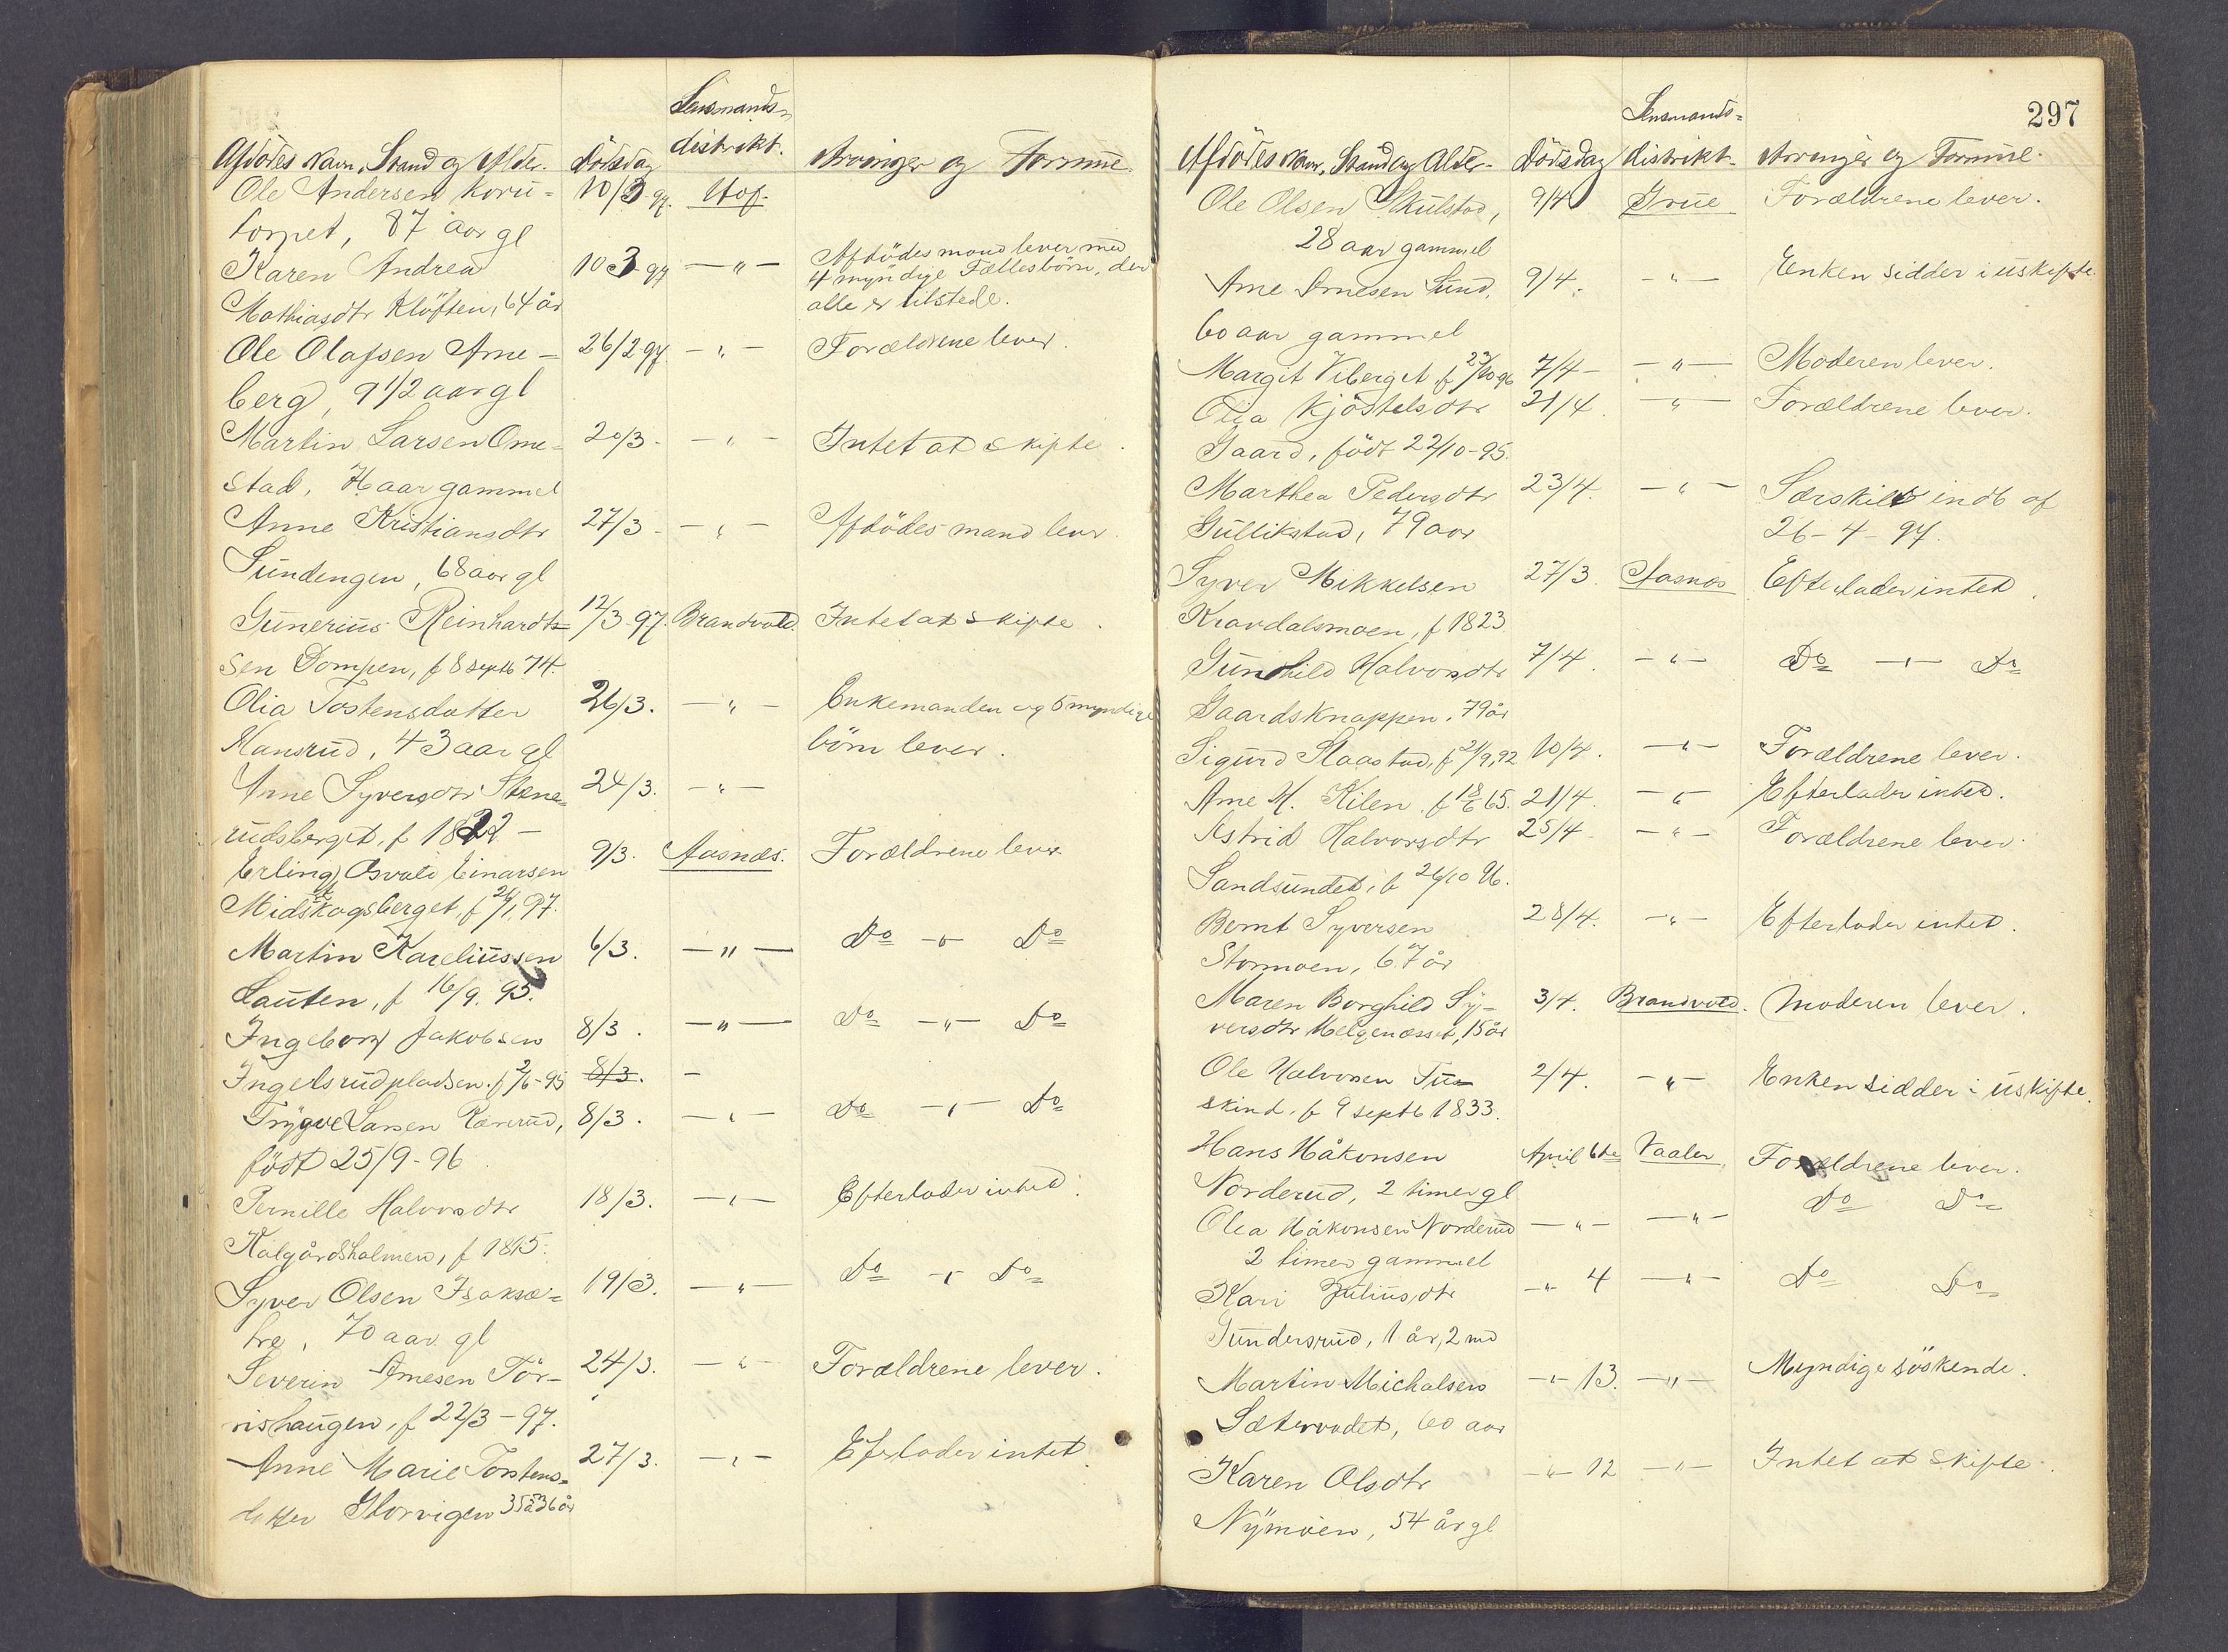 Lensmands-
distrikt.
Afdödes Navn, Stand og Alder. Dödsdag Arvinger og Formue.
Ole Andersen Koru- 10/3-97. Hof.
torpet, 87 aar gl
Karen Andrea 10 3-97 —"— Afdödes mand lever med
4 myndige Fællesbörn, der
Mathiasdtr Klöften, 64 år alle er tilstede.
Ole Olafsen Arne- 26/2-97 —"— Forældrene lever.
berg, 9 1/2 aar gl
Martin Larsen Ome- 20/3- —"— Intet at skifte.
stad, aar gammel
Anne Kristiansdtr 27/3- —"— Afdödes mand lever.
Sundengen, 68 aar gl
Gunerius Reinhardt- 12/3-97. Brandvold. Intet at skifte.
sen Dompen, f 8 septb 74.
Olia Tostensdatter 26/3. —"— Enkemanden og 5 myndige
Hansrud, 43 aar gl börn lever.
Anne Syversdtr Stene- 24/3. —"—
rudsberget, f 1822-
Erling Osvald Einarsen 9/3. Aasnæs. Forældrene lever
Midskogsberget, f 21/1 97.
Martin Kareliussen 6/3. —"— Do —"— Do
Lauten, f 16/9. 95.
Ingeborg Jakobsen 8/3. —"— Do —"— Do
Ingelsrudpladsen. f 2/6-95 8/3. -
Trygve Larsen Rærerud, 8/3. —"— Do —"— Do
födt 25/9-96
Pernille Halvorsdtr 18/3. —"— Efterlader intet.
Kalgårdsholmen, f 1815.
Syver Olsen Isaksæ- 19/3. —"— Do —"— Do
tre, 70 aar gl
Severin Arnesen Tör- 24/3. —"— Forældrene lever.
rishaugen, f 22/3-97.
Anne Marie Torstens- 27/3. —"— Efterlader intet.
datter Storvigen 35 à 36 år
297
Lensmands-
Afdödes Navn, Stand og Alder- Dödsdag distrikt- Arvinger og Formue.
Ole Olsen Skulstad, 9/4 Grue Forældrene lever.
28 aar gammel
Arne Arnesen Lund, 9/4. —"— Enken sidder i uskifte.
60 aar gammel
Margit Viberget f 23/10 96 7/4- —"— Moderen lever.
Olia Kjöstelsdtr 21/4. —"— Forældrene lever.
Gaard, födt 22/10-95.
Marthea Pedersdtr 23/4. —"— Særskilt indb af
Gullikstad, 79 aar 26-4-97.
Syver Mikkelsen 27/3. Aasnæs Efterlader intet.
Kravdalsmoen, f 1823
Gunhild Halvorsdtr 7/4. —"— Do —"— Do
Gaardsknappen. 79 år
Sigurd Staastad, f 21/9, 92 10/4. —"— Forældrene lever.
Arne H. Kilen f 18/6 65. 21/4. —"— Efterlader intet.
Astrid Halvorsdtr 25/4 —"— Forældrene lever.
Sandsundet, f 26/10 96.
Bernt Syversen 28/4. —"— Efterlader intet.
Stormoen, 67 år
Maren Borghild Sy- 3/4. Brandvold. Moderen lever.
versdtr Helgenæsset, 15 år
Ole Halvorsen Tu- 2/4. —"— Enken sidder i uskifte.
skind, f 9 septb 1833.
Hans Håkonsen April 6te Vaaler, Forældrene lever.
Norderud, 2 timer gl
Olea Håkonsen Norderud —"— —"— Do Do
2 timer gammel
Kari Juliusdtr —"— 4 —"— Do Do
Gundersrud, 1 år, 2 md
Martin Michalsen —"— 13. —"— Myndige söskende.
Sætervadet, 60 aar
Karen Olsdtr —"— 12 —"— Intet at skifte.
Nymoen, 54 år gl